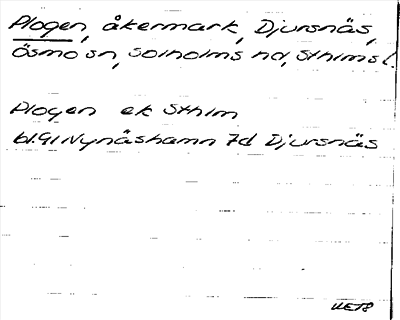 Plogen, åkermark, Djursnäs,
Ösmo sn, Sotholms hd, Sthlms l.
Plogen ek Sthlm
bl.91 Nynäshamn 7d Djursnäs